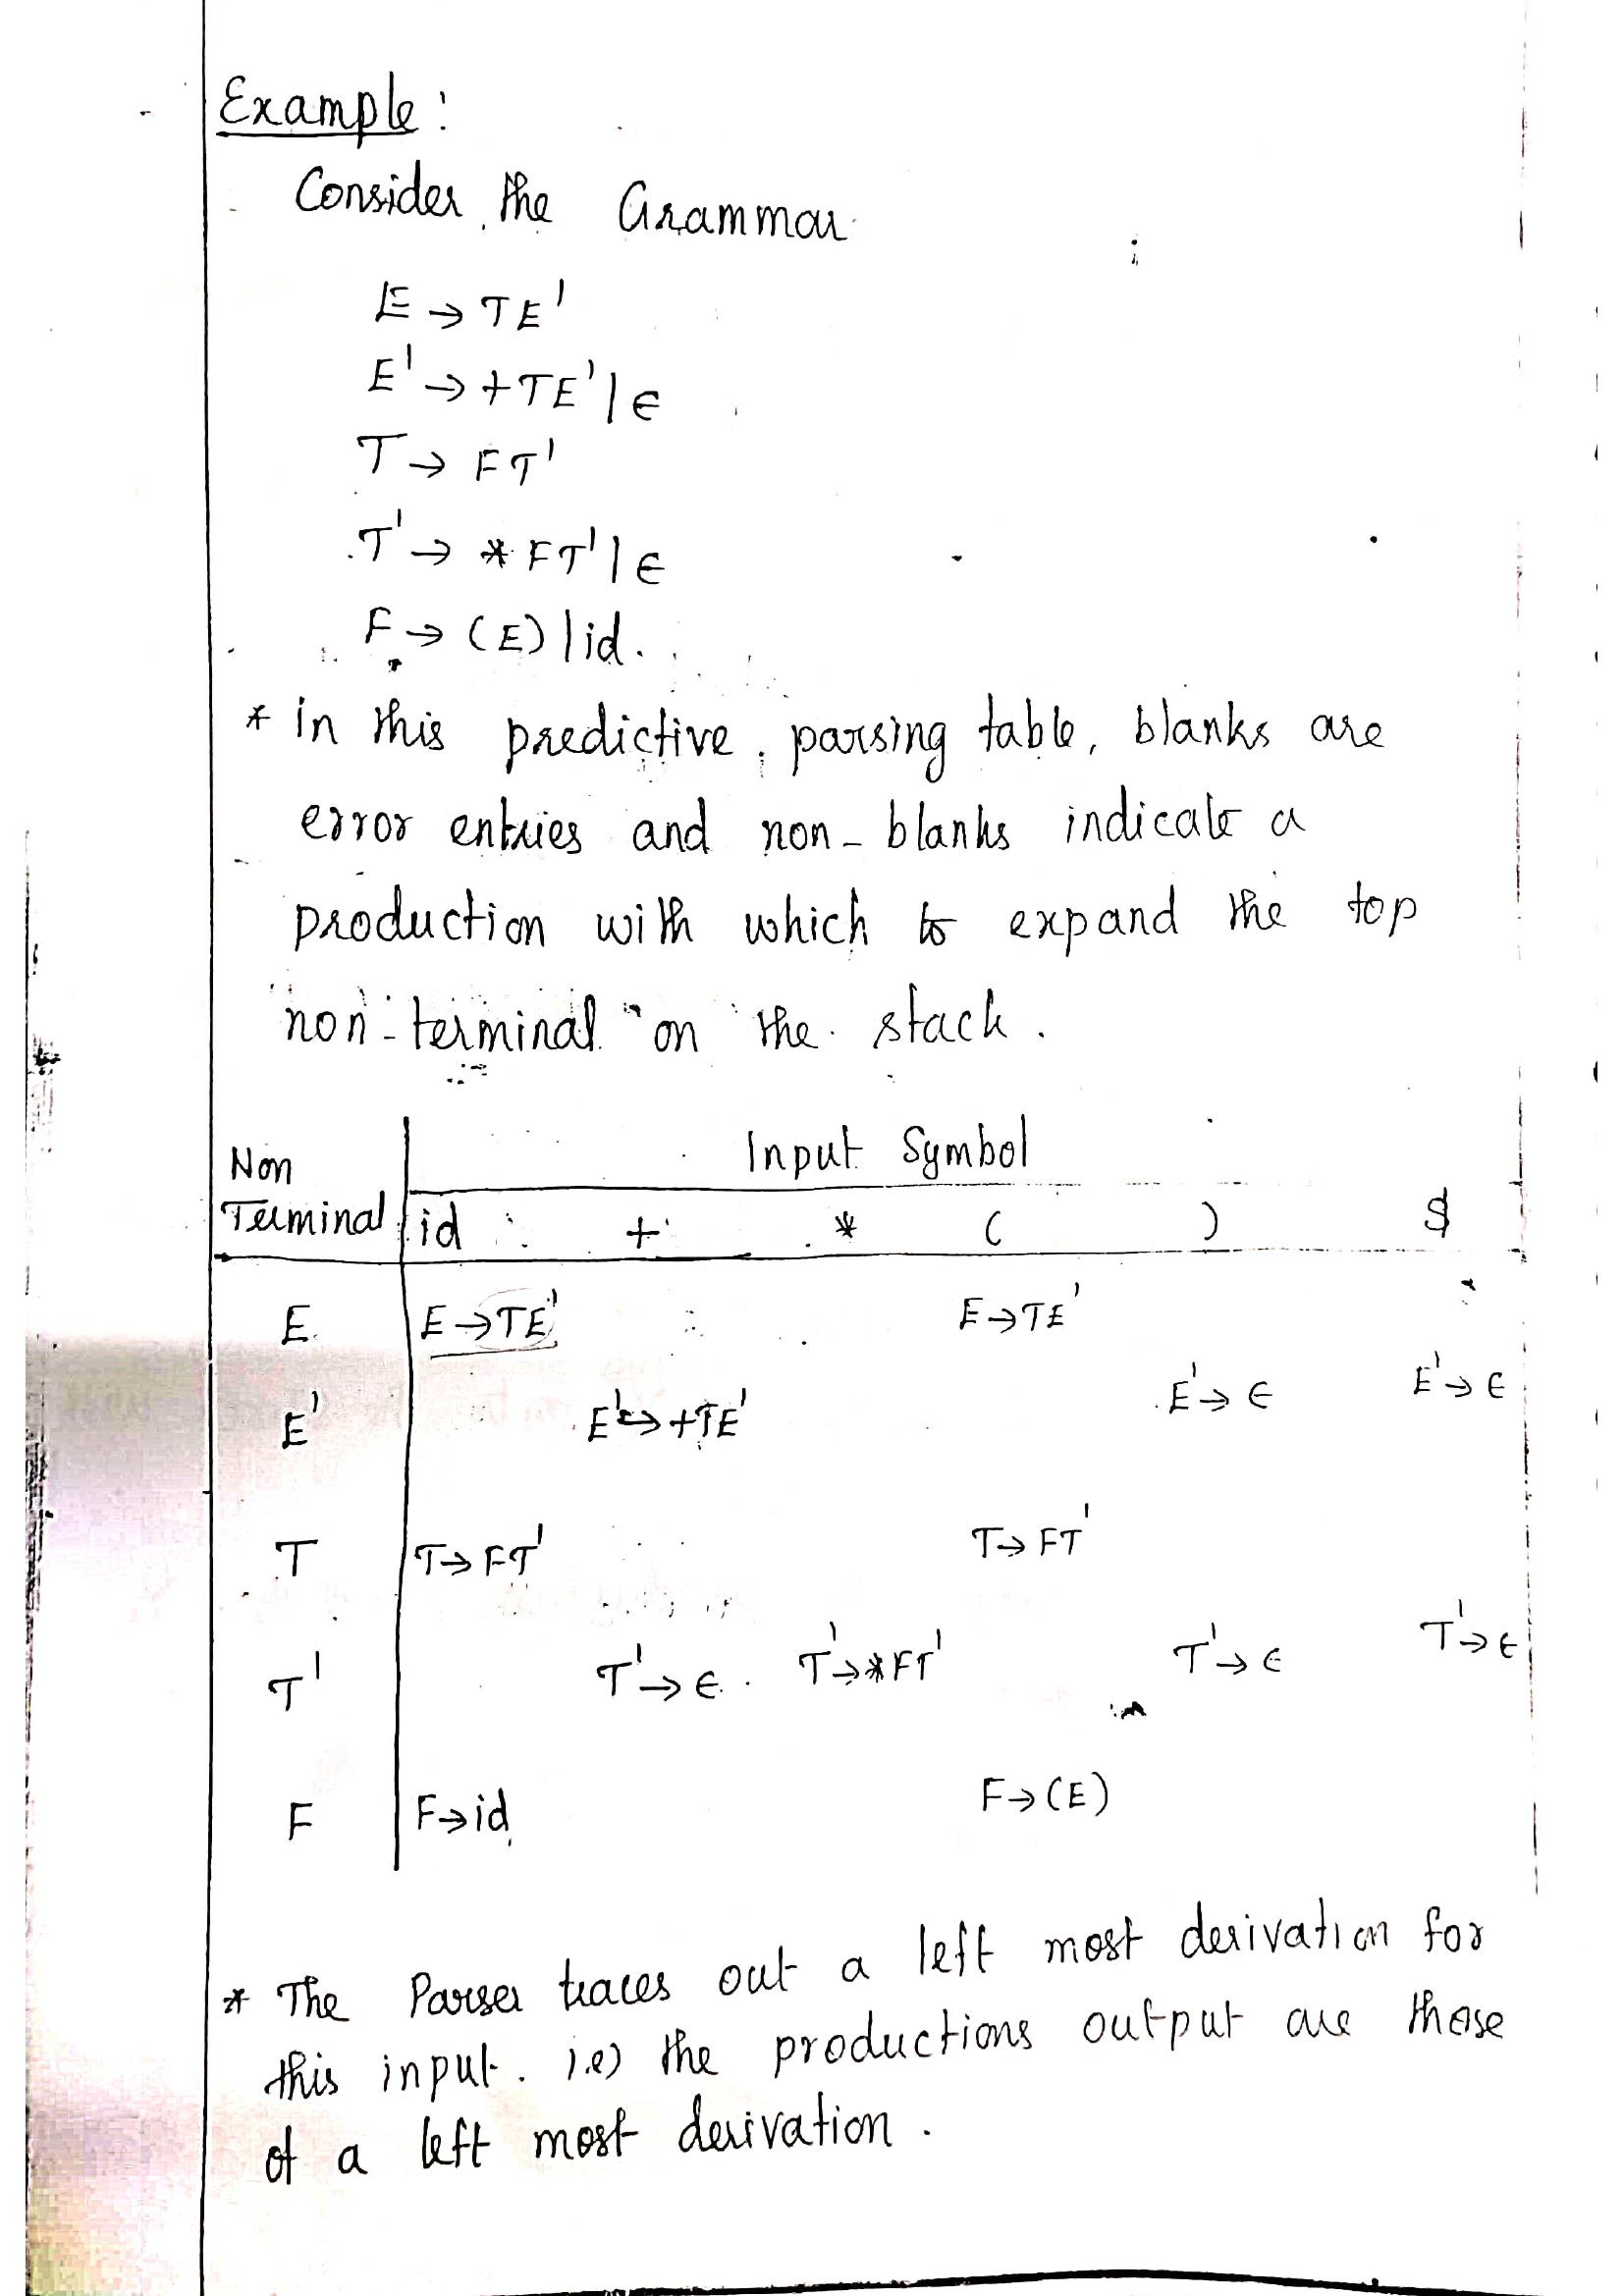 Example:
Consider the Grammar
E → TE'
E' → +TE' | ∈
T → FT'
T' → * FT' | ∈
F → (E) | id.
* in this predictive parsing table, blanks are
error entries and non-blanks indicate a
production with which to expand the top
non-terminal on the stack.
Input Symbol
Non
Terminal id + * ( ) $
E E → TE' E → TE'
E' E' → +TE' E' → ∈ E' → ∈
T T → FT' T → FT'
T' T' → ∈ T' → *FT' T' → ∈ T' → ∈
F F → id F → (E)
* The Parser traces out a left most derivation for
this input. i.e) the productions output are those
of a left most derivation.